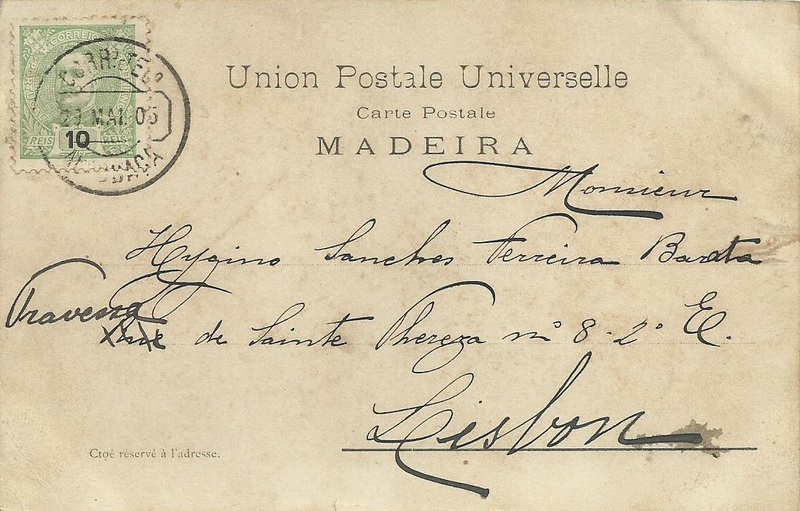 CORREIO
10
REIS REIS
29 MAI. 05
Union Postale Universelle
Carte Postale
MADEIRA
Monsieur
Hygino Sanches Ferreira Barata
Travessa
de Sainte Thereza nº 8-2º E.
Lisbon
Ctoé réservé à l'adresse.